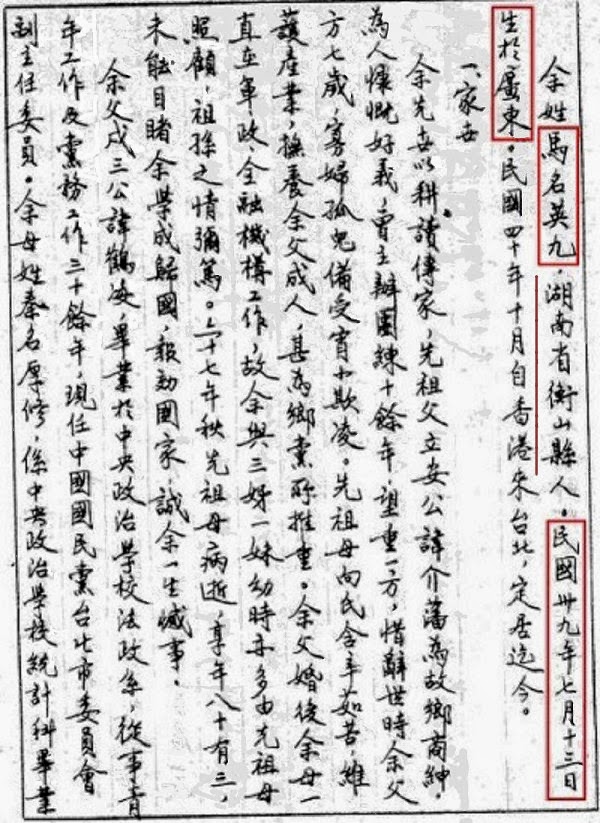 余姓馬名英九，湖南省衡山縣人。民國卅九年七月十三日
生於廣東。民國四十年十月自香港來台北，定居迄今。
一、家世
余先世以耕讀傳家，先祖父立安公諱介藩為故鄉商紳，
為人慷慨好義，曾主辦團練十餘年，望重一方，惜辭世時余父
方七歲，寡婦孤兒備受宵小欺凌。先祖母向氏含辛茹苦，維
護產業，撫養余父成人，甚為鄉黨所推重。余父婚後余母一
直在軍政金融機構工作，故余與三姊一妹幼時亦多由先祖母
照顧，祖孫之情彌篤。六十七年秋先祖母病逝，享年八十有三，
未能目睹余學成歸國，報効國家，誠余一生憾事。
余父戍三公諱鶴凌，畢業於中央政治學校法政系，從事青
年工作及黨務工作三十餘年，現任中國國民黨台北市委員會
副主任委員。余母姓秦名厚修，係中央政治學校統計科畢業